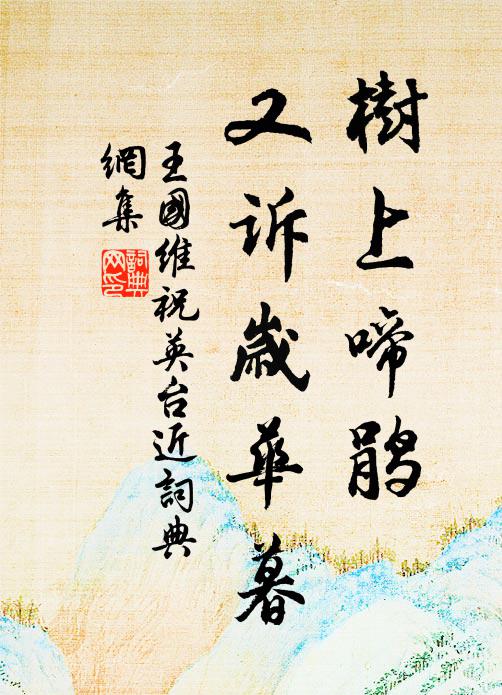 樹上啼鹃
又诉歲華暮
王國維祝英台近詞典
網集
詞典
网印